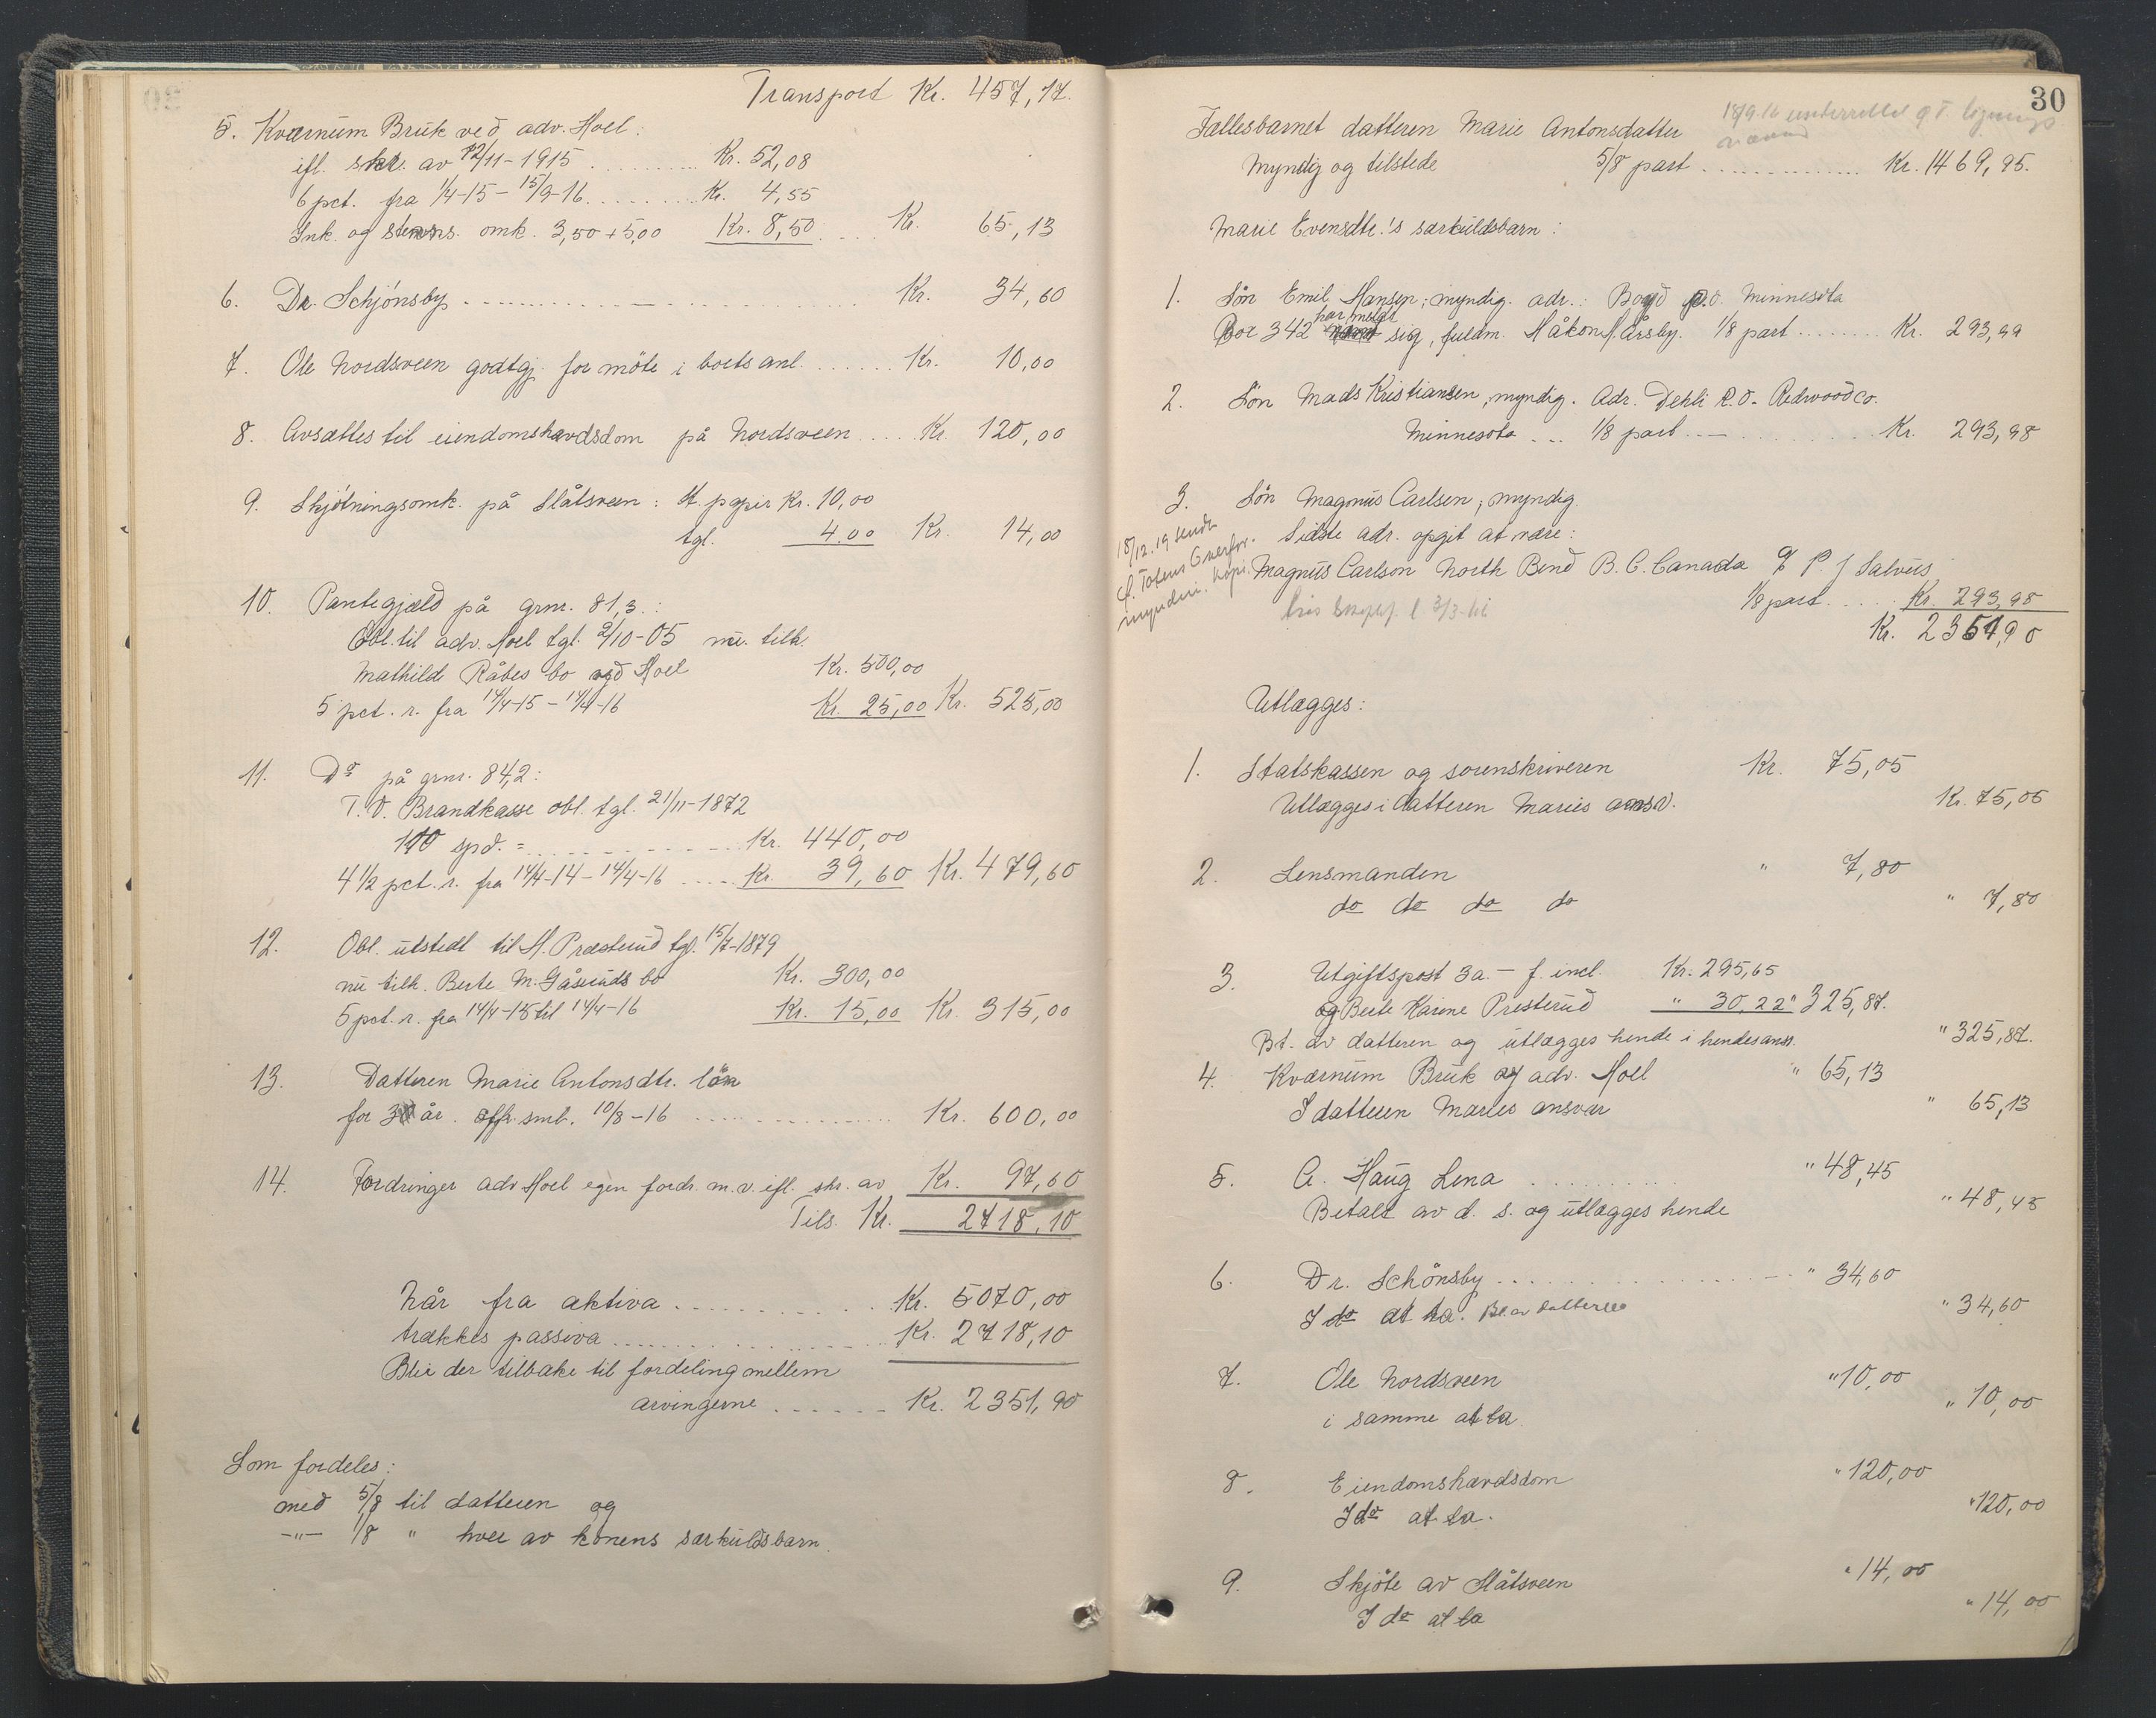 Transport Kr. 457,17.
5. Kværnum Bruk ved adv. Hoel:
ifl. skr. av 12/11-1915 ........ Kr. 52,08
6 pct. fra 1/4-15 - 15/9-16 ........ Kr. 4,55
Ink. og stevns. omk. 3,50 + 5,00 Kr. 8,50 .... Kr. 65,13
6. Dr. Schjönsby ........ Kr. 34,60
7. Ole Nordsveen godtgj. for möte i boets anl. ...... Kr. 10,00
8. Avsættes til eiendomshævdsdom på Nordsveen .... Kr. 120,00
9. Skjötningsomk. på Slåtsveen: St. papir Kr. 10,00
tgl. 4.00 Kr. 14,00
10. Pantegjæld på grnr. 81,3.:
Obl. til adv. Hoel tgl. 2/10-05 nu tilh.
Mathilde Råbes bo ved Hoel Kr. 500,00
5 pct. r. fra 14/4-15 - 14/4-16 Kr. 25,00 Kr. 525,00
11. Do på grnr. 84,2:
T. O. Brandkasse obl. tgl. 21/11-1872
110 spd. = ........ Kr. 440,00
4 1/2 pct. r. fra 14/4-14 - 14/4-16 ..... Kr. 39,60 Kr. 479,60
12. Obl. utstedt til H. Præsterud tgl. 15/7-1879
nu tilh. Berte M. Gåsunds bo Kr. 300,00
5 pct. r. fra 14/4-15 til 14/4-16 Kr. 15,00 Kr. 315,00
13. Datteren Marie Antonsdtr. lön
for 3 år. smb. 10/8-16 ........ Kr. 600,00
14. Fordringer adv Hoel egen fordr. m.v. ifl. skr. av Kr. 97,60
Tils. Kr. 2718,10
Når fra aktiva .......... Kr. 5070,00
trækkes passiva .......... Kr. 2718,10
Blir der tilbake til fordeling mellem
arvingerne ...... Kr. 2351,90
Som fordeles:
med 5/8 til datteren og
-"- 1/8 " hver av konens særkuldsbarn.
30
18/9-16 underrettet
Fællesbarnet datteren Marie Antonsdatter
Myndig og tilstede 5/8 part ............. Kr. 1469,95.
Marie Evensdtr.'s særkuldsbarn:
1. Sön Emil Hansen; myndig. adr.: Boyd P.O. Minnesota
har meldt
Box 342 sig, fuldm. Håkon Hårsby. 1/8 part ....... Kr. 293,99
2. Sön Mads Kristiansen, myndig. Adr. Dehli P.O. Redwood co.
Minnesota ... 1/8 part ........ Kr. 293,98
3. Sön Magnus Carlsen; myndig.
Sidste adr. opgit at være:
18/12.19 sendt
Totens Overfor.
Magnus Carlson North Bend B. C. Canada % P. J Salvus
1/8 part .... Kr. 293,98
Kr. 2351,90
Utlægges:
1. Statskassen og sorenskriveren Kr. 75,05
Utlægges i datteren Maries ansv. Kr. 75,05
2. Lensmanden " 7,80
do do do do " 7,80
3. Utgiftspost 3a. - f. incl. Kr. 295,65
og Berte Karine Presterud " 30,22 " 325,87.
Bt. av datteren og utlægges hende i hendes ansv. " 325,87.
4. Kværnum Bruk og adv. Hoel " 65,13
I datteren Maries ansvar " 65,13
5. A. Haug Lena .......... " 48,45
Betalt av d. s. og utlægges hende " 48,45
6. Dr. Schönsby .............. " 34,60
I do at ta. Bt. av datteren " 34,60
7. Ole Nordsveen " 10,00
i samme at ta. " 10,00
8. Eiendomshævdsdom " 120,00
I do at ta. " 120,00
9. Skjöte av Slåtsveen " 14,00
I do at ta " 14,00